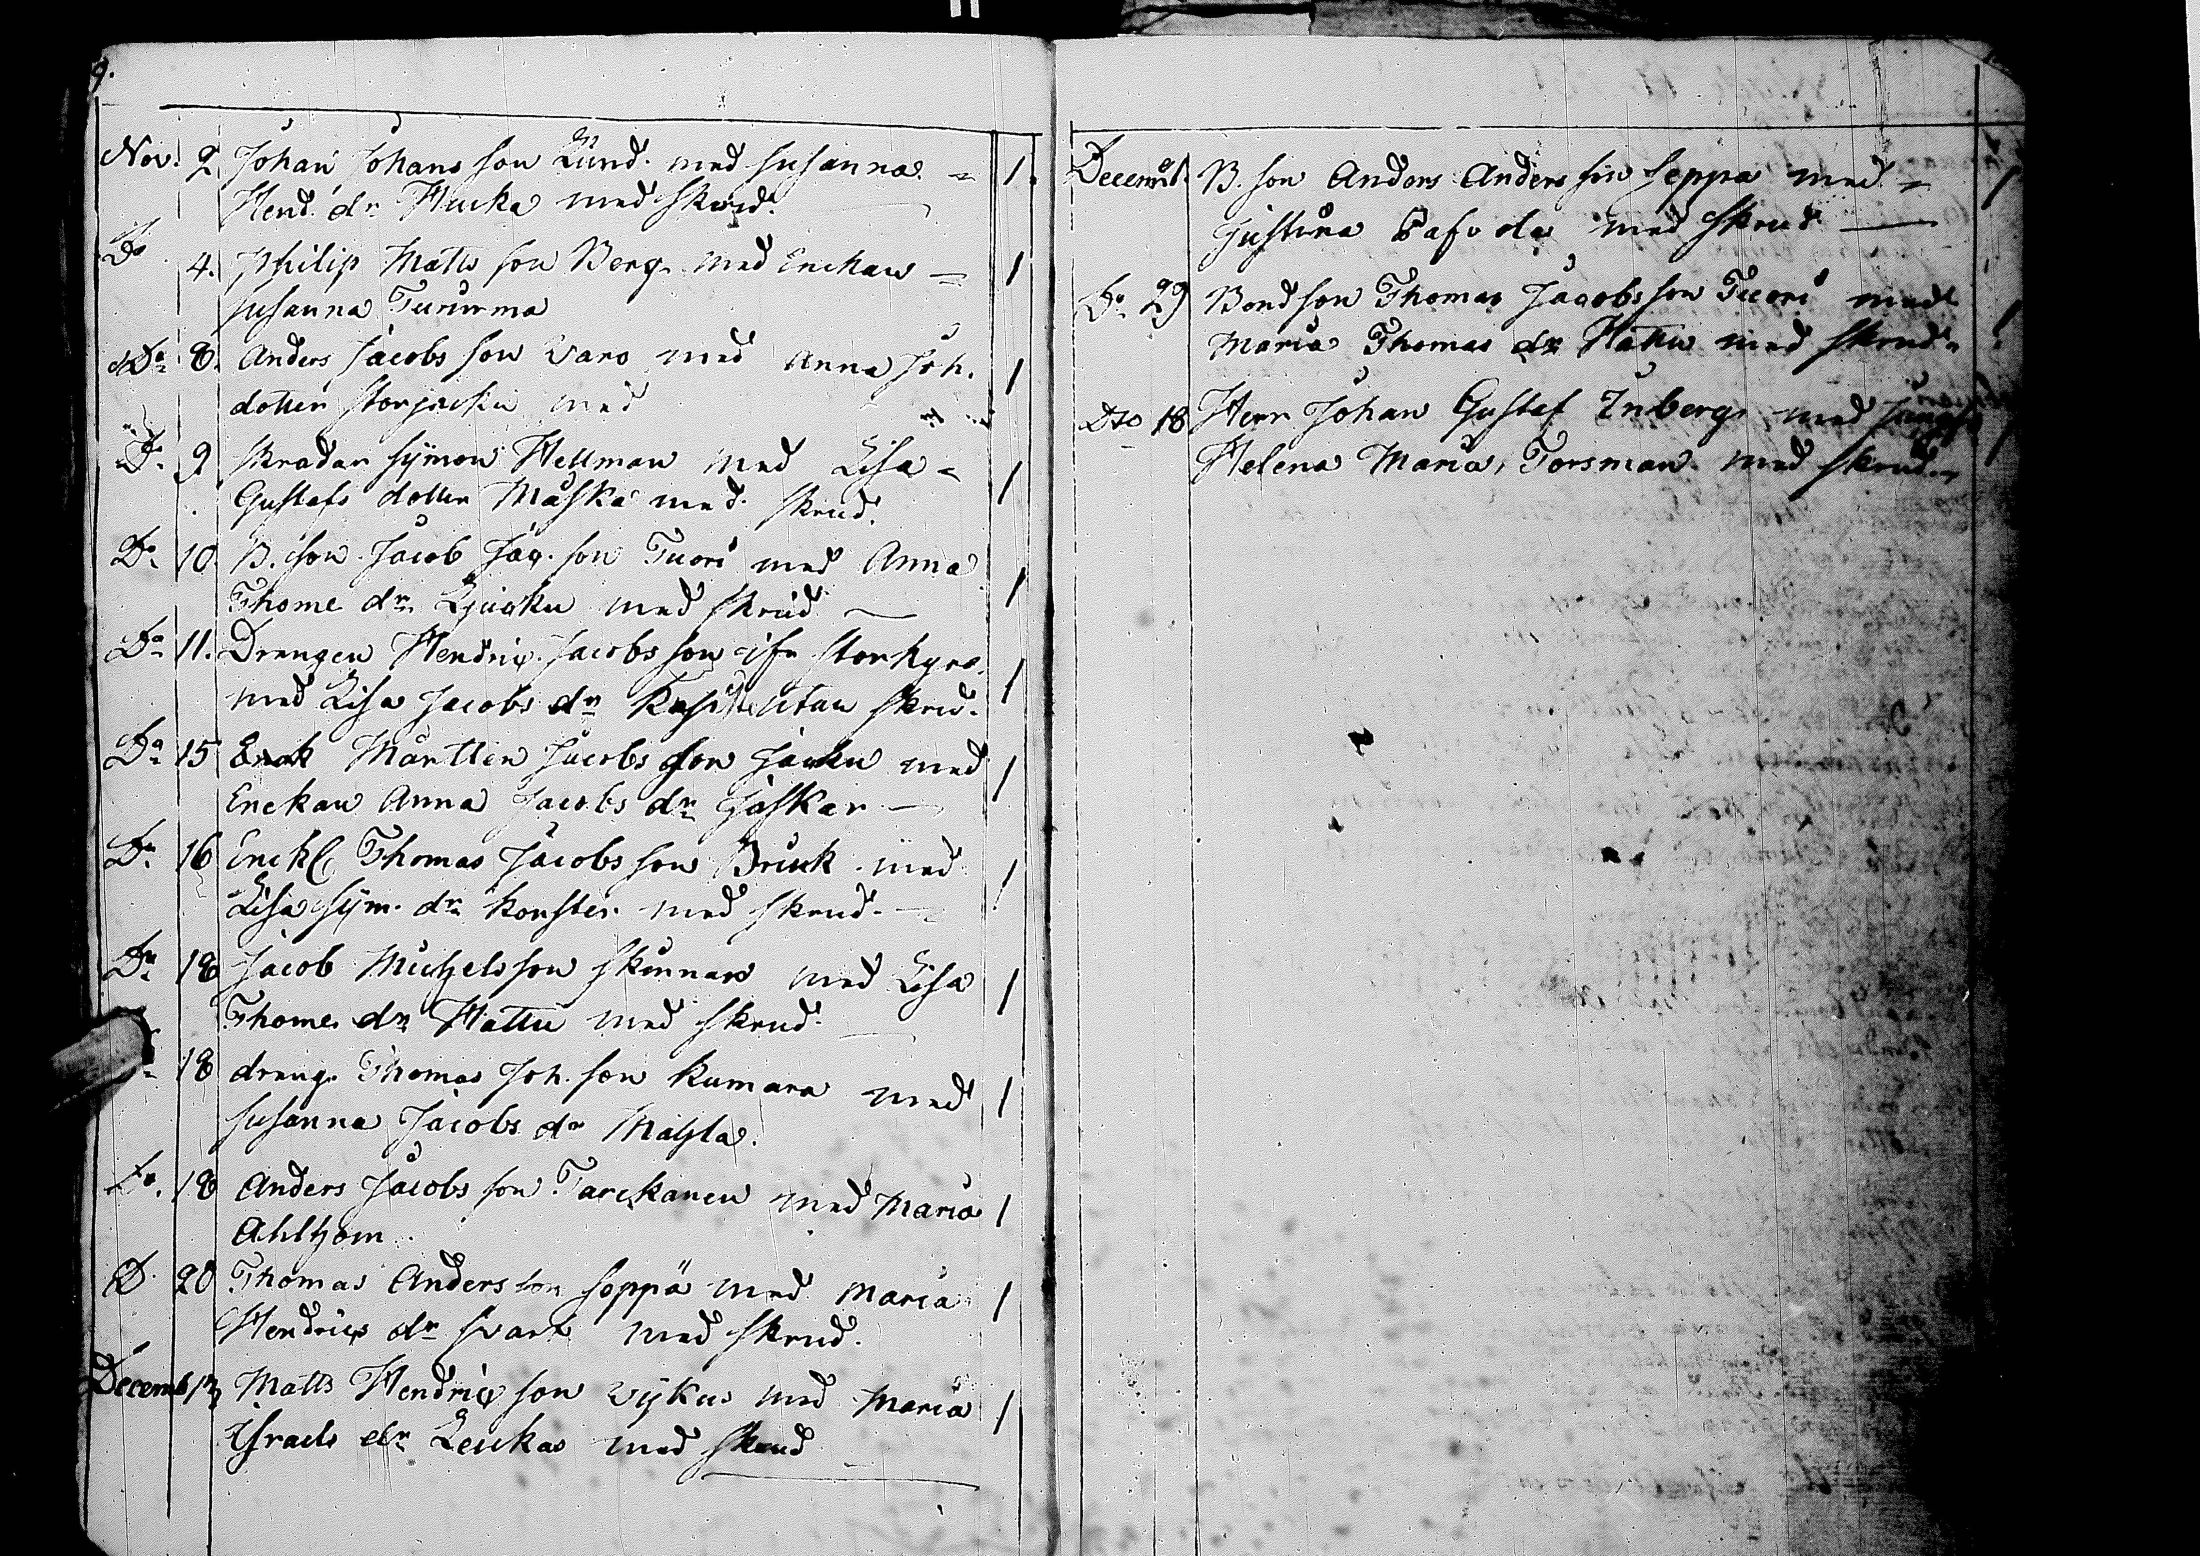 9.
Nov. 2 Johan Johans son Lund. med Susanna 1.
Hend. dr Hucka med skrud.
Do 4. Philip Matts son Berg. med Enckan 1
Susanna Turunma
Do 8. Anders Jacobs son Varo med Anna Joh. 1
dotter Storjacku med
Do 9 Skradar Symon Hellman med Lisa 1
Gustafs dotter Måska med skrud.
Do 10. B. son Jacob Jac. son Tuori med Anna 1
Thome dr med skrud
Do 11. Drengen Hendric Jacobs son ifr Storkyro 1
med Lisa Jacobs dr utan skrud.
Do 15 Enck Mårtten Jacobs son Jacku med 1
Enckan Anna Jacobs dr
Do 16 Enckl Thomas Jacobs son Bruk med 1
Lisa Sym. dr Konster med skrud.
Do 18 Jacob Michels son Skinnars med Lisa 1
Thome dr Hattu med skrud.
18 dreng. Thomas Joh. son Kumara med 1
Susanna Jacobs dr
Do. 18 Anders Jacobs son Tarckanen med Maria 1
Ahlhom
D. 20 Thomas Anders son Seppä med Maria 1
Hendrics dr Svart med skrud.
Decemb 13 Matts Hendric son Vykus med Maria 1
Israels dr Leukas med skrud
Decem 1. B. son Anders Anders son Seppa med 1
Justina med skrud
Do 29 Bondson Thomas Jacobs son Tuori med 1
Maria Thomas dr Hattu med skrud
Dto 18 Herr Johan Gustaf Inberg med Jungf 1
Helena Maria Forsman med skrud